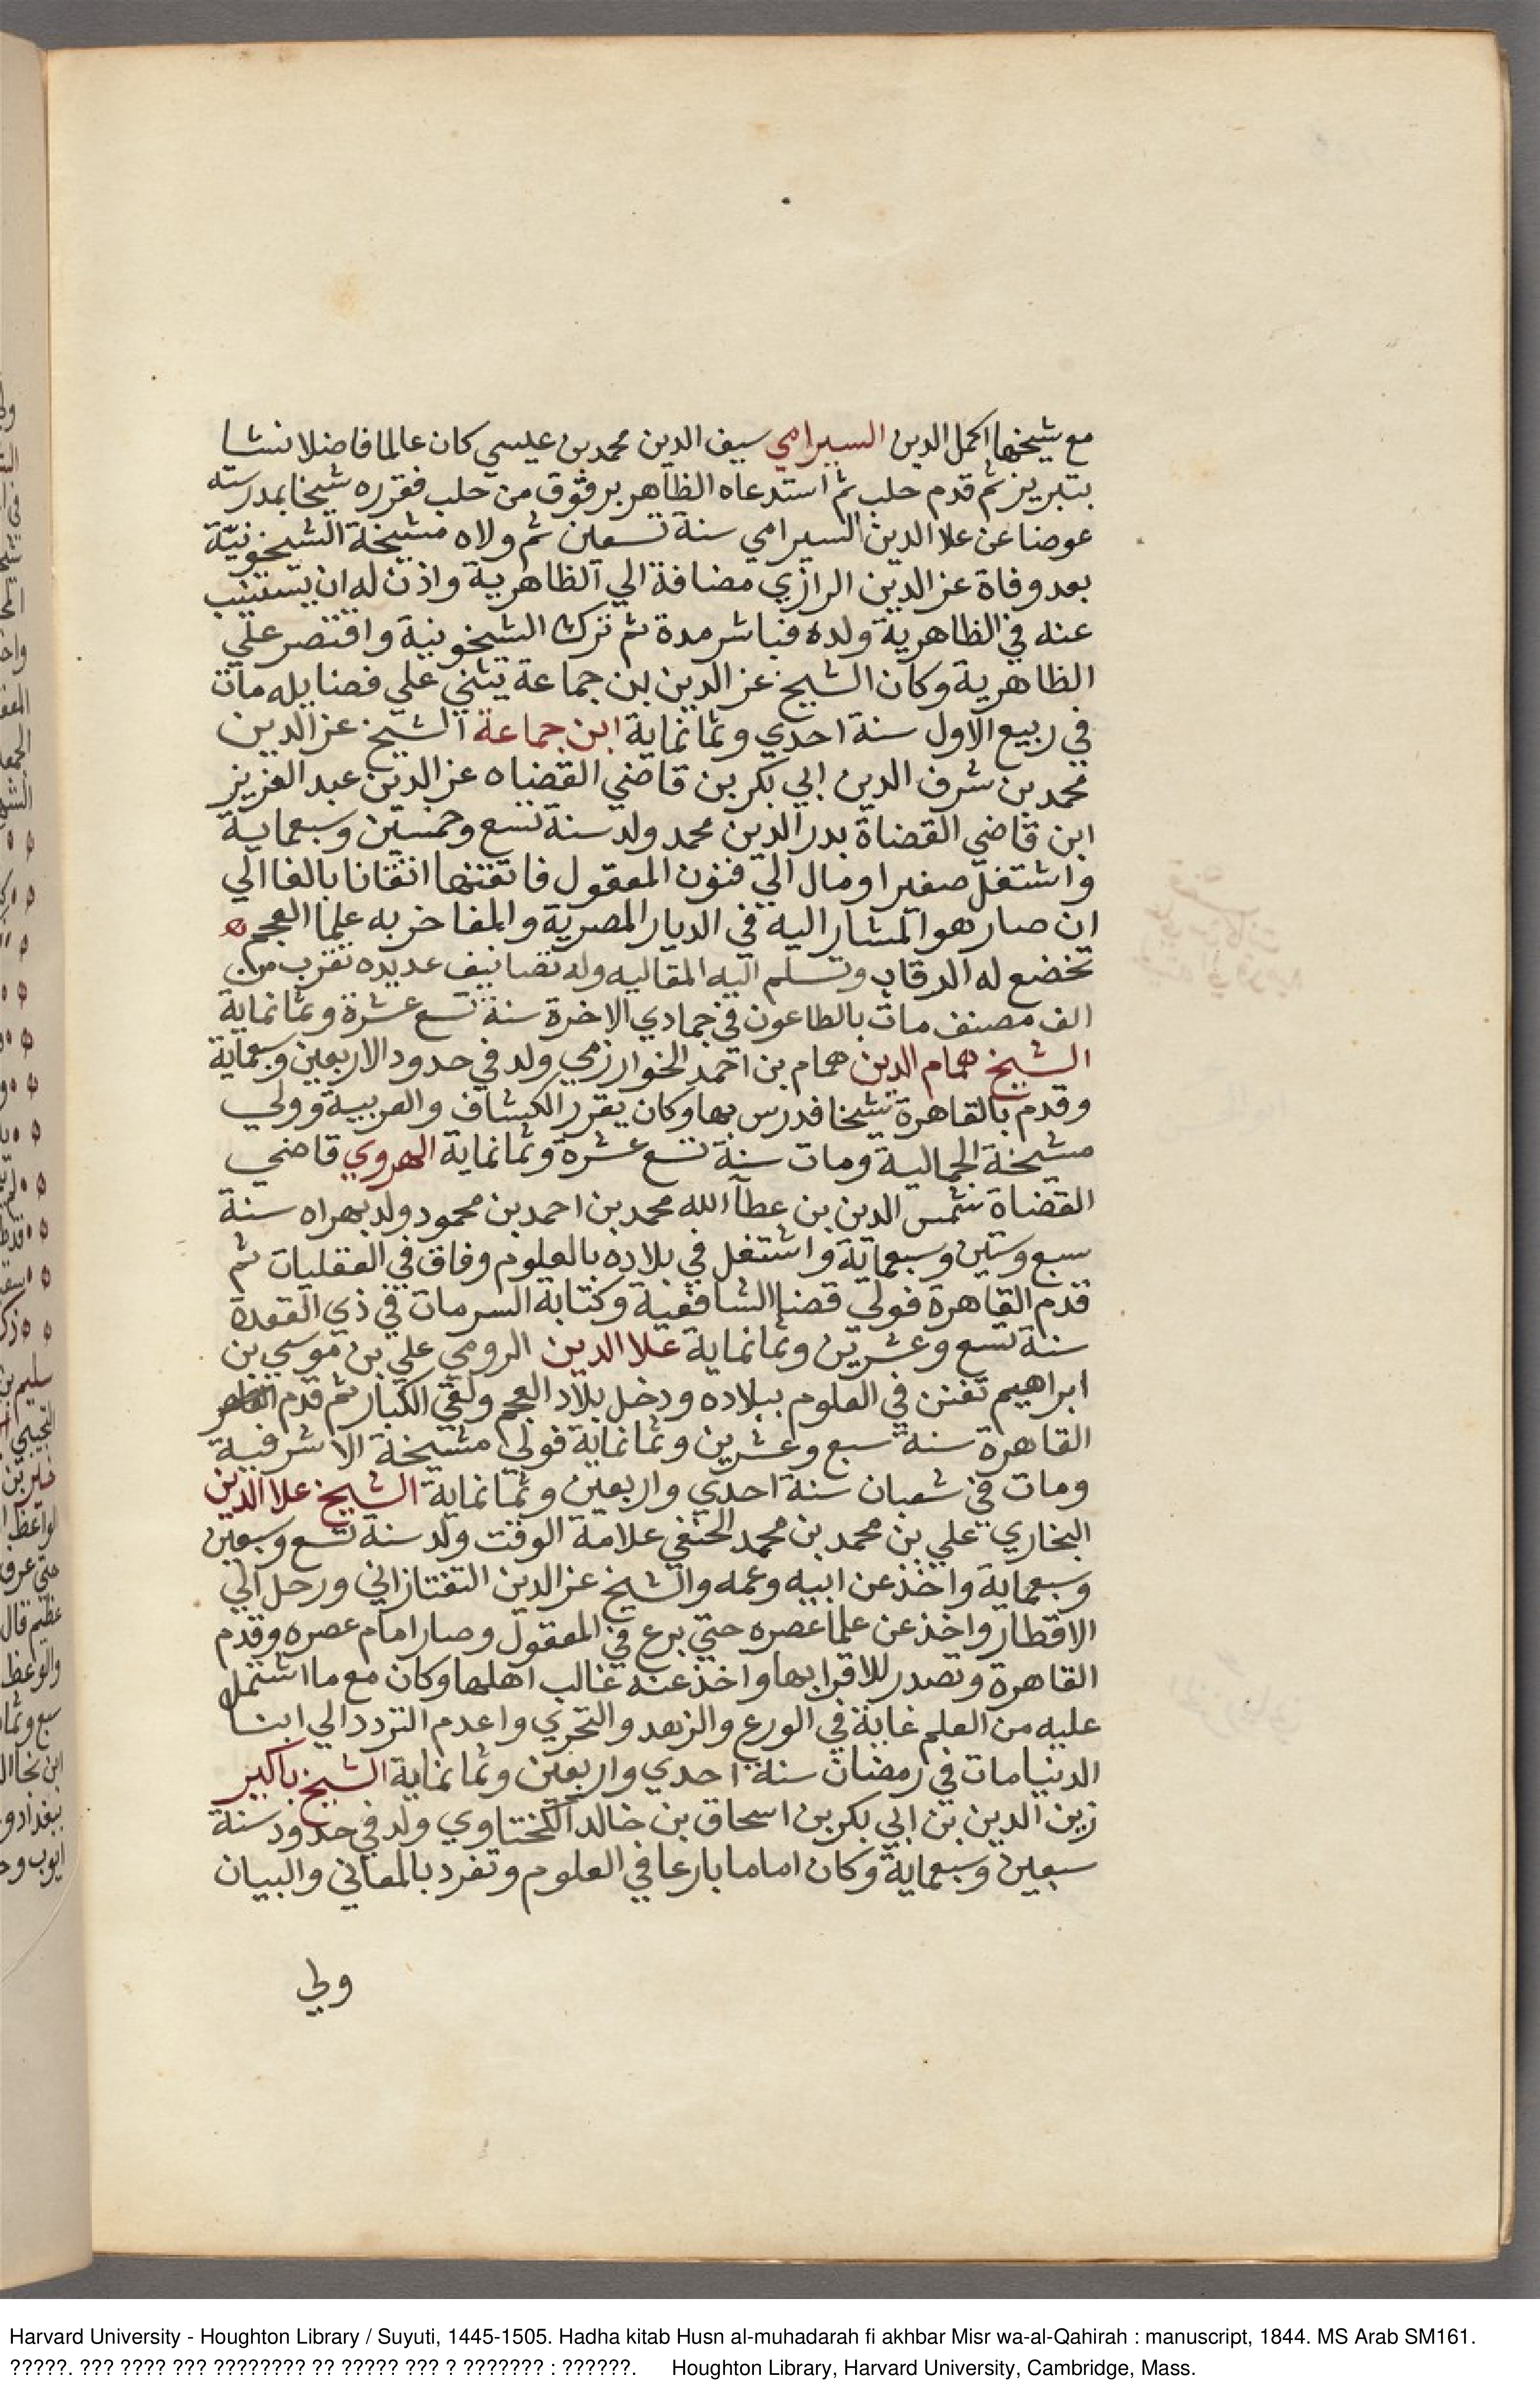 مع شيخها اكمل الدين السيرامي سيف الدين محمد بن عيسي كان عالما فاضلا نشا
بتبريز ثم قدم حلب ثم استدعاه الظاهر برقوق من حلب فقرره شيخا بمدرسته
عوضا عن علا الدين السيرامي سنة تسعين ثم ولاه مشيخة الشيخونية
بعد وفاة عز الدين الرازي مضافة الي الظاهرية واذن له ان يستنيب
عنه في الظاهرية ولده فباشر مدة ثم ترك الشيخونية واقتصر علي
الظاهرية وكان الشيخ عز الدين بن جماعة يثني علي فضايله مات
في ربيع الاول سنة احدي وثمانماية ابن جماعة الشيخ عز الدين
محمد بن شرف الدين ابي بكر بن قاضي القضاه عز الدين عبد العزيز
ابن قاضي القضاة بدر الدين محمد ولد سنة تسع وخمسين وسبعماية
واشتغل صغيرا ومال الي فنون المعقول فاتقنها اتقانا بالغا الي
ان صار هو المشار اليه في الديار المصرية والمفاخر به علما العجم ه
تخضع له الرقاب وتسلم اليه المقاليه وله تصانيف عديده تقرب من
الف مصنف مات بالطاعون في جمادي الاخرة سنة تسع عشرة وثمانماية
الشيخ همام الدين همام بن احمد الخوارزمي ولد في حدود الاربعين وسبعماية
وقدم بالقاهرة شيخا فدرس بها وكان يقرر الكشاف والعربية وولي
مشيخة الجمالية ومات سنة تسع عشرة وثمانماية الهروي قاضي
القضاة شمس الدين بن عطآ الله محمد بن احمد بن محمود ولد بهراه سنة
سبع وستين وسبعماية واشتغل في بلاده بالعلوم وفاق في العقليات ثم
قدم القاهرة فولي قضا الشافعية وكتابة السر مات في ذي القعدة
سنة تسع وعشرين وثمانماية علا الدين الرومي علي بن موسي بن
ابراهيم تفنن في العلوم ببلاده ودخل بلاد العجم ولقي الكبار ثم قدم
القاهرة سنة سبع وعشرين وثمانماية فولي مشيخة الاشرفية
ومات في شعبان سنة احدي واربعين وثمانماية الشيخ علا الدين
البخاري علي بن محمد بن محمد الحنفي علامة الوقت ولد سنة تسع وسبعين
وسبعماية واخذ عن ابيه وعمه والشيخ عز الدين التفتازاني ورحل الي
الاقطار واخذ عن علما عصره حتي برع في المعقول وصار امام عصره وقدم
القاهرة وتصدر للاقرا بها واخذ عنه غالب اهلها وكان مع ما اشتمل
عليه من العلم غاية في الورع والزهد والتحري واعدم التردد الي ابنا
الدنيا مات في رمضان سنة احدي واربعين وثمانماية الشيخ باكير
زين الدين بن ابي بكر بن اسحاق بن خالد الكختاوي ولد في حدود سنة
سبعين وسبعماية وكان اماما بارعا في العلوم وتفرد بالمعاني والبيان
ولي
Harvard University - Houghton Library / Suyuti, 1445-1505. Hadha kitab Husn al-muhadarah fi akhbar Misr wa-al-Qahirah : manuscript, 1844. MS Arab SM161.
?????. ??? ???? ??? ???????? ?? ????? ??? ? ??????? : ??????. Houghton Library, Harvard University, Cambridge, Mass.